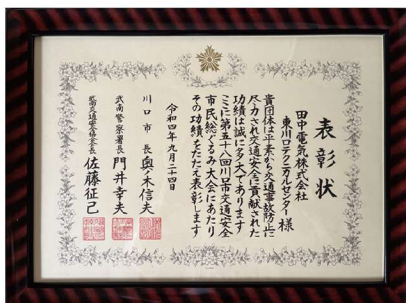 表彰状
田中電気株式会社
東川口テクニカルセンター様
貴団体は平素から交通事故防止に
尽力され交通安全に貢献された
功績は誠に多大であります
ここに第五十八回川口市交通安全
市民総ぐるみ大会にあたり
その功績をたたえ表彰します
令和四年九月二十四日
川口市長 奥ノ木信夫
武南警察署長 門井幸夫
武南交通安全協会長 佐藤征己